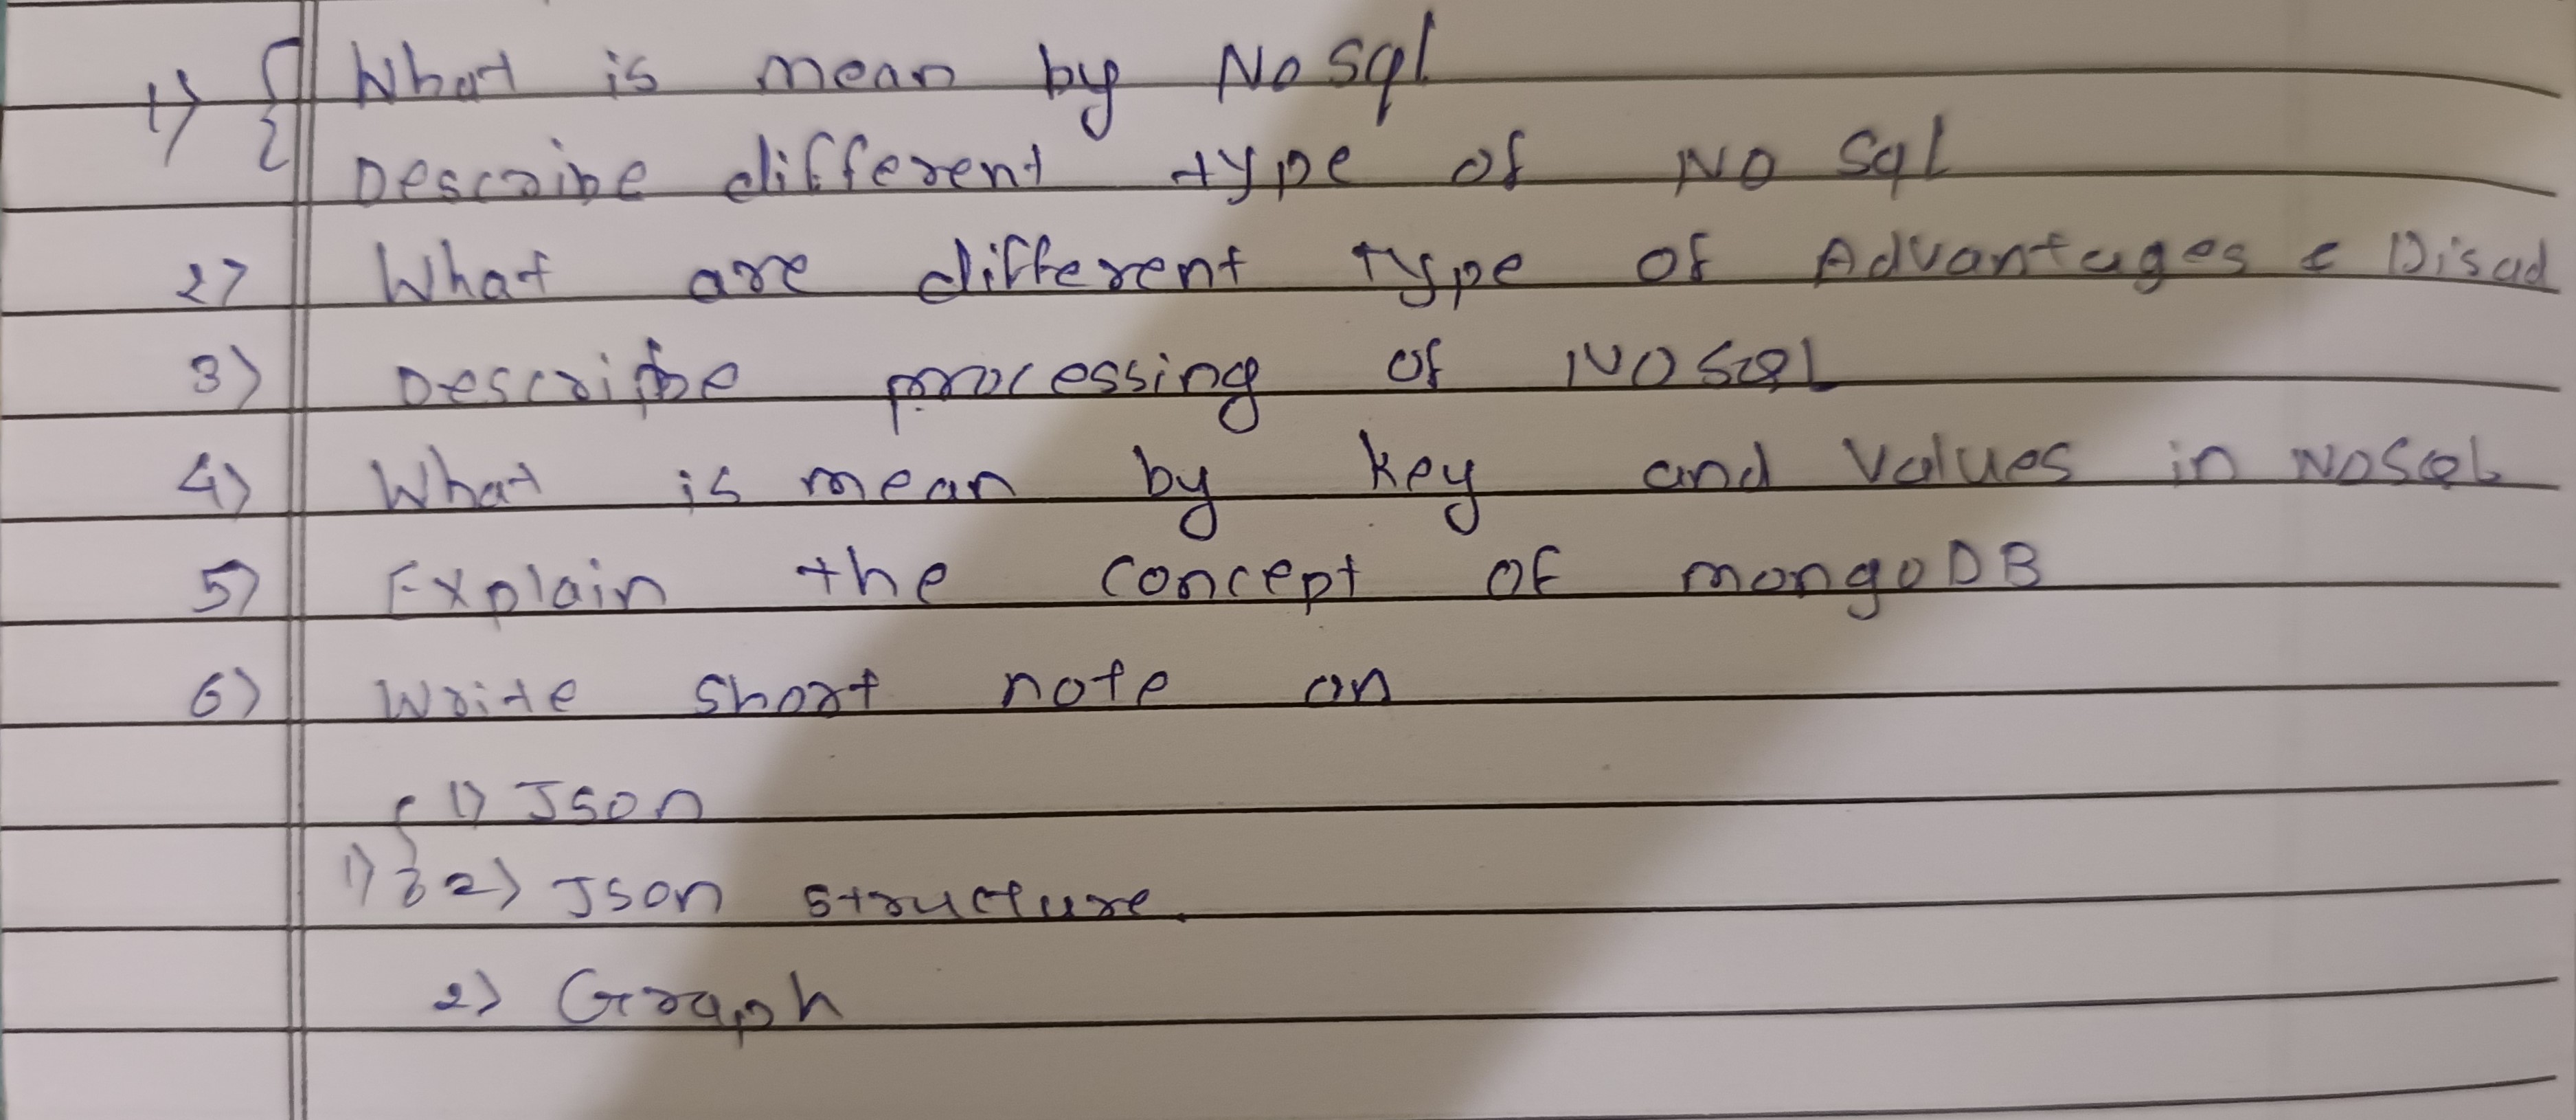 1) { What is mean by No Sql
Describe different type of No Sql
2) What are different type of Advantages & Disad
3) Describe processing of NOSQL
4) What is mean by key and Values in NOSQL
5) Explain the concept of mongoDB
6) Write short note on
{ 1) Json
1) 2) Json structure.
2) Graph